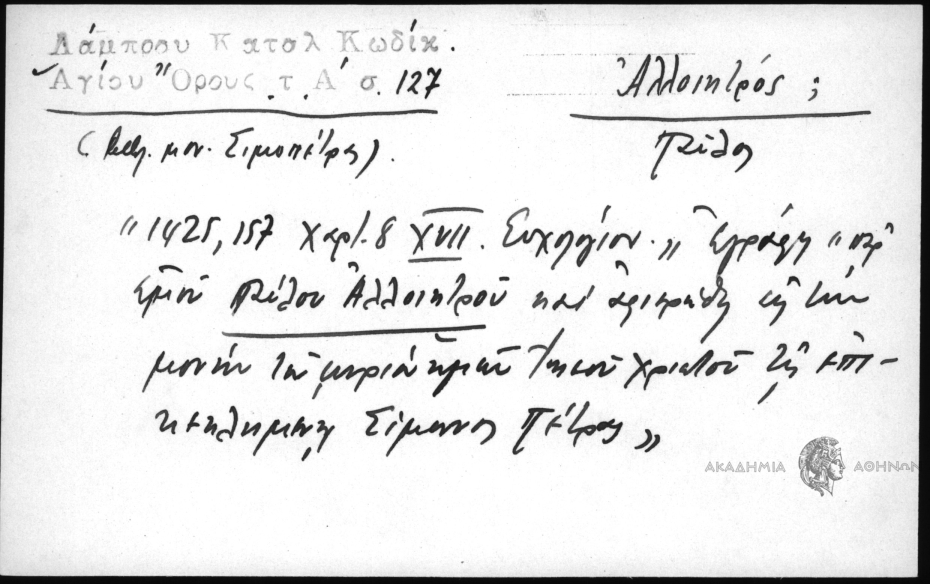 Λάμπρου Καταλ Κωδίκ.
Ἁγίου Ὄρους τ. Α΄ σ. 127
Ἀλλοιητρός ;
( μον. Σιμοπέτρας).
"1425,157 Χαρτ. 8 XVII. Εὐχολόγιον. " Ἐγράφη "παρ'
ἐμοῦ Ἀλλοιητροῦ καὶ ἀφιερώθη εἰς τὴν
μονὴν τοῦ κυρίου ἡμῶν Ἰησοῦ Χριστοῦ τῆς ἐπι-
κεκλημένης Σίμωνος Πέτρας"
ΑΚΑΔΗΜΙΑ ΑΘΗΝΩΝ